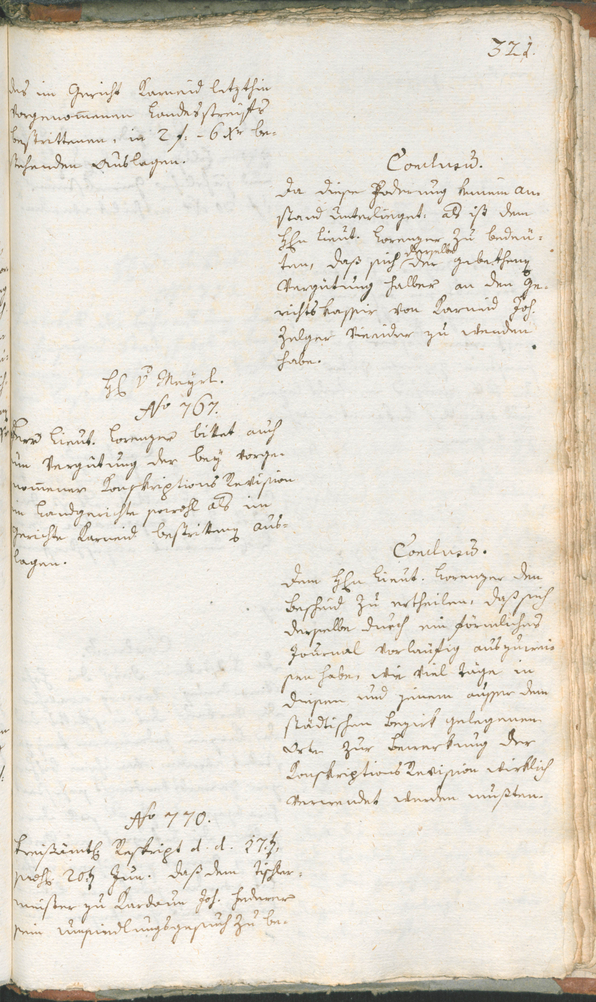 321.
des im Gericht Karneid letzthin
vorgenommenen Landesstreifs
bestrittenen, in 2 f. - 6 Xr be-
stehenden Auslagen.
Conclusum.
Da diese Foderung keinem An-
stand unterlieget: als ist dem
Hhn Lieut. Lorenzer zu bedeu-
ten, daß sich derselbe der gebethenen
Vergütung halber an den Ge-
richtskassier von Karneid Joh.
Zelger Vieider zu wenden
habe.
H v Mayrl.
No 767.
Herr Lieut. Lorenzer bittet auch
um Vergütung der bey vorge-
nommener Konskriptions Revision
im Landgerichte sowohl als im
Gerichte Karneid bestrittenen Aus-
lagen.
Conclusum.
Dem Hhn Lieut. Lorenzer den
Bescheid zu ertheilen, daß sich
derselbe durch ein förmliches
Journal vorläufig auszuwei-
sen habe, wie viel Täge in
diesem und jenem ausser dem
städtischen Bezirk gelegenen
Orte zur Bewerkung der
Konskriptions Revision wirklich
verwendet werden mußten.
No 770.
Kreisämtl. Reskript d. d. 17t,
 20t Jun. daß dem Tischler-
meister zu Kardaun Joh. Federer
sein Ansiedlungsgesuch zu be-